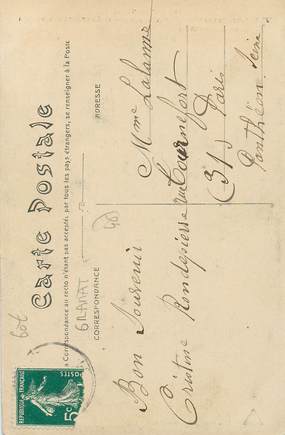 Carte Postale
La Correspondance au recto n'étant pas acceptée, par tous les pays étrangers, se renseigner à la Poste
CORRESPONDANCE
ADRESSE
GRAMAT
Bon Souvenir
Cristine Rondepierre
Mme Lalanne
rue Tournefort
(31) Paris
Panthéon Seine
REPUBLIQUE FRANÇAISE
5c
POSTES